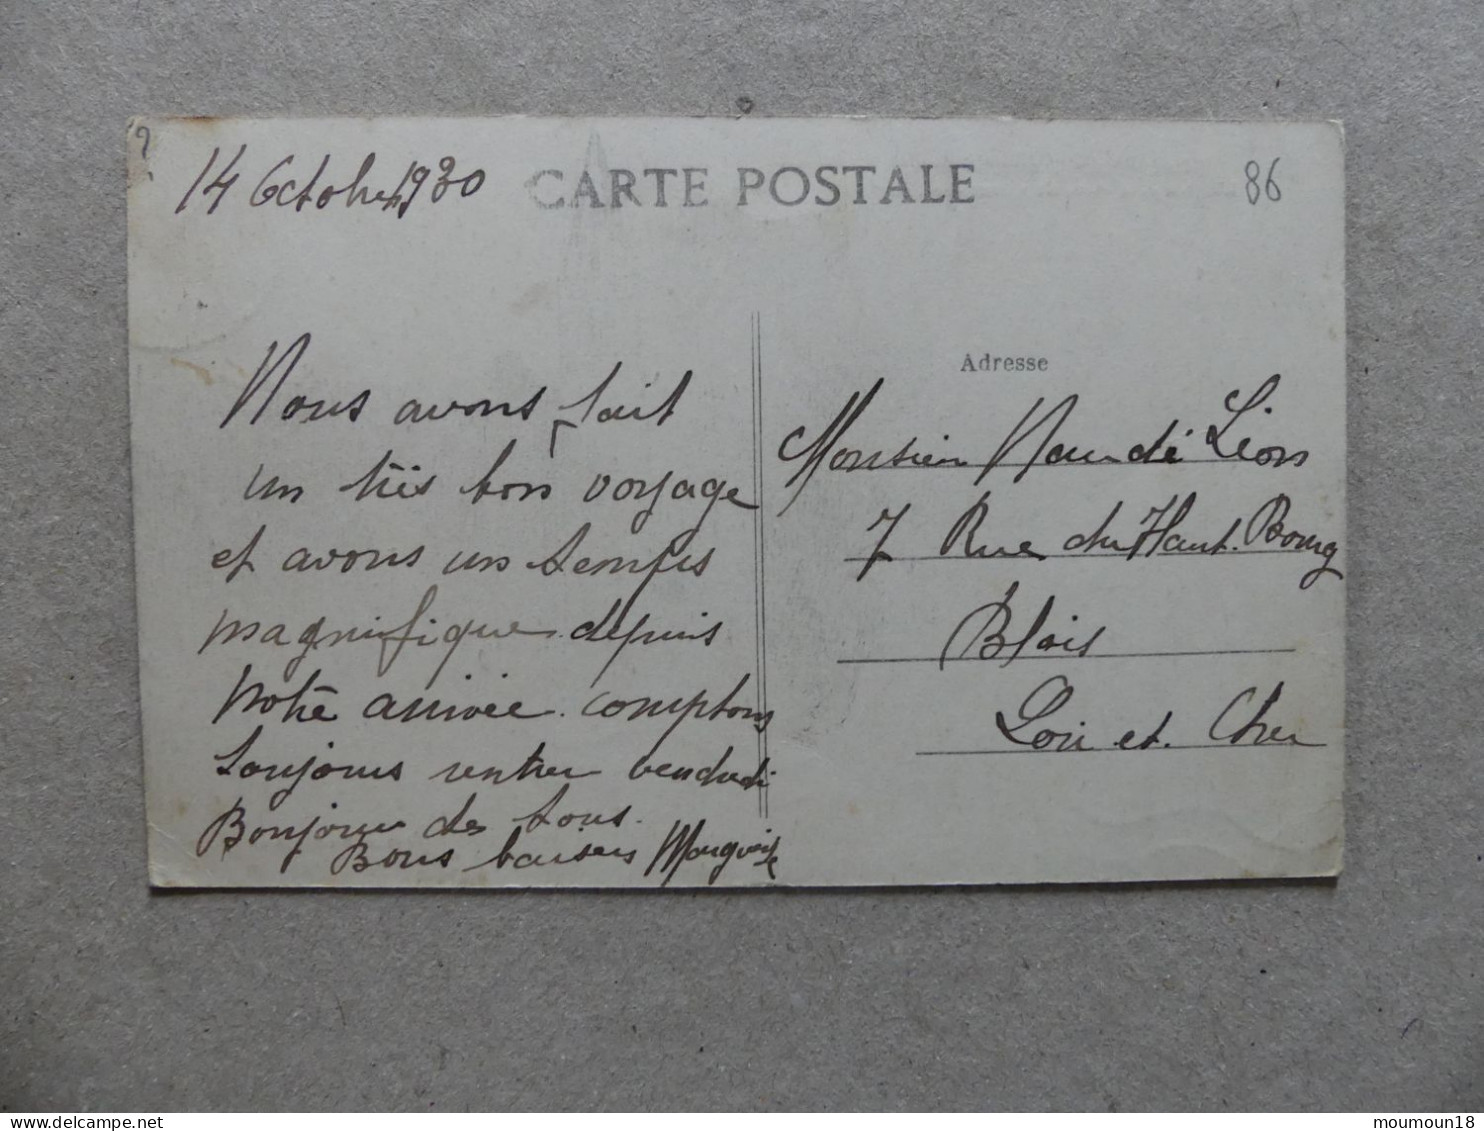 14 Octobre 1930
CARTE POSTALE
86
Nous avons fait
un très bon voyage
et avons un temps
magnifique depuis
notre arrivée. comptons
toujours rentrer vendredi
Bonjour de tous.
Bons baisers Marguerite
Adresse
Monsieur Naudé Léon
7 Rue du Haut-Bourg
Blois
Loir et. Cher
delcampe.net
moumoun18